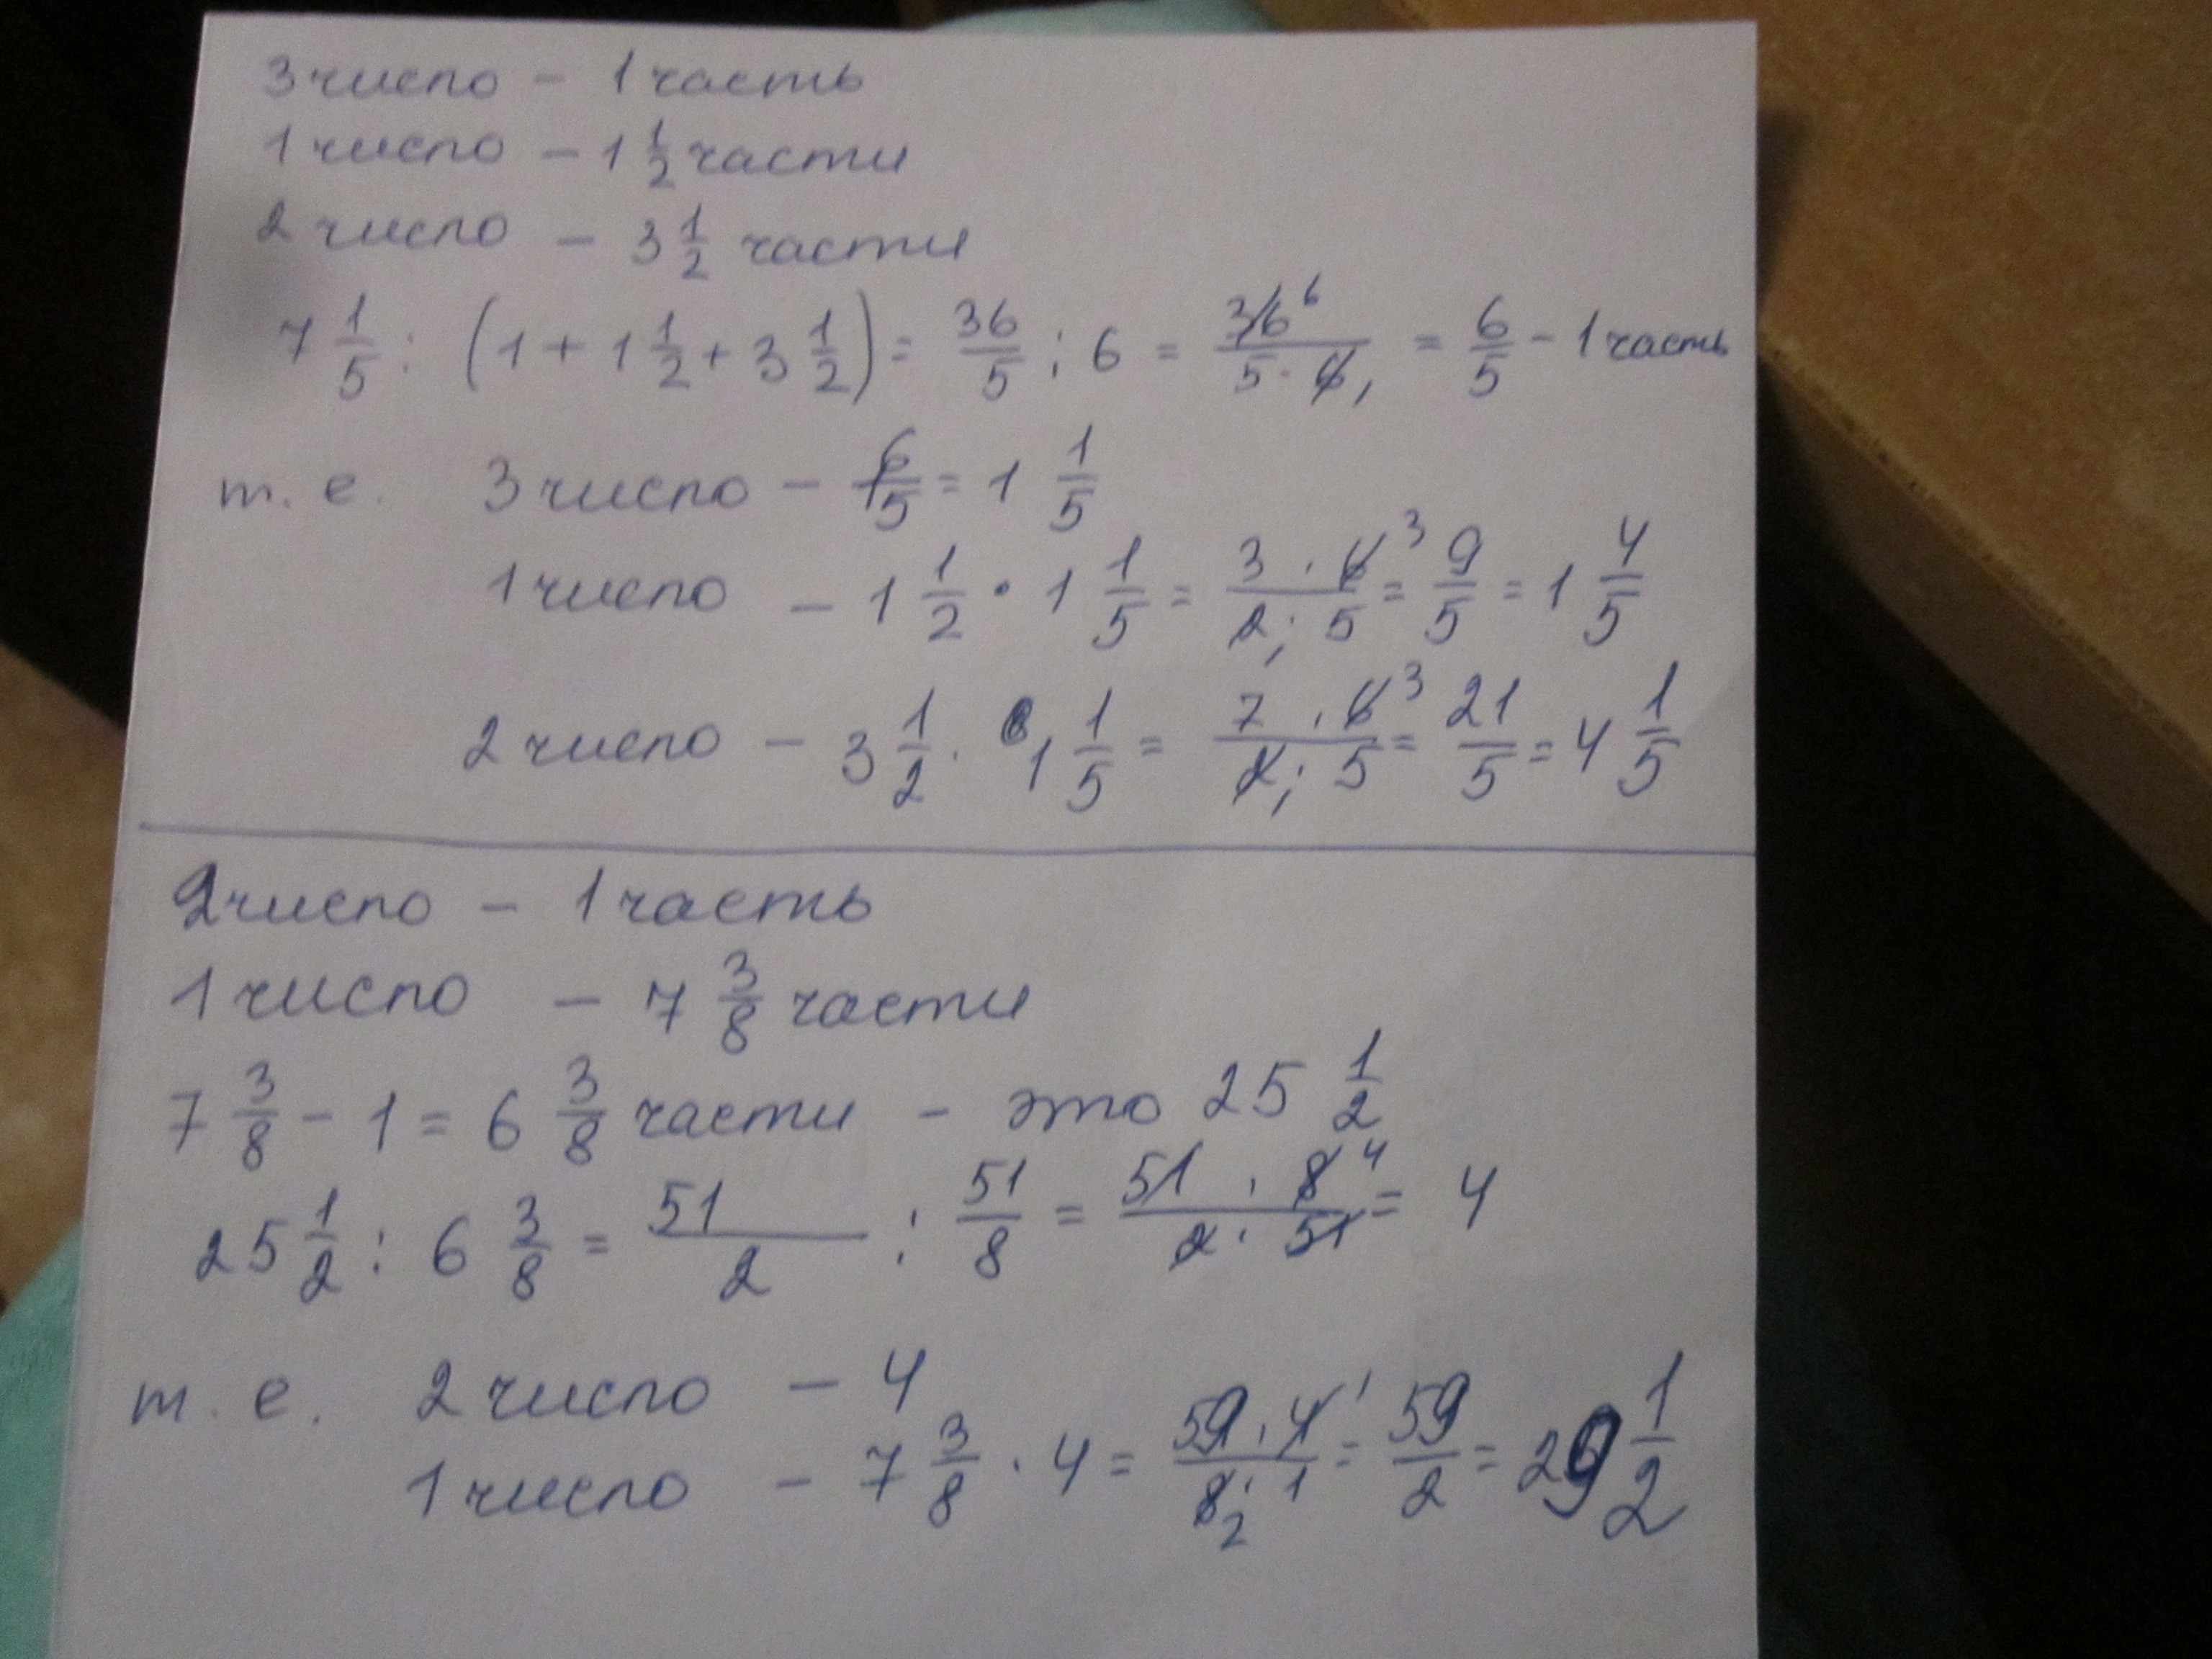 3 число – 1 часть
1 число – 1 1/2 части
2 число – 3 1/2 части
7 1/5 : (1 + 1 1/2 + 3 1/2) = 36/5 : 6 = 36 6/5 · 6 1 = 6/5 – 1 часть
т. е. 3 число – 6/5 = 1 1/5
1 число – 1 1/2 · 1 1/5 = 3 · 6 3/2 1 · 5 = 9/5 = 1 4/5
2 число – 3 1/2 · 1 1/5 = 7 · 6 3/2 1 · 5 = 21/5 = 4 1/5
2 число – 1 часть
1 число – 7 3/8 части
7 3/8 – 1 = 6 3/8 части – это 25 1/2
25 1/2 : 6 3/8 = 51/2 : 51/8 = 51 · 8 4/2 · 51 = 4
т. е. 2 число – 4
1 число – 7 3/8 · 4 = 59 · 4 1/8 2 · 1 = 59/2 = 29 1/2